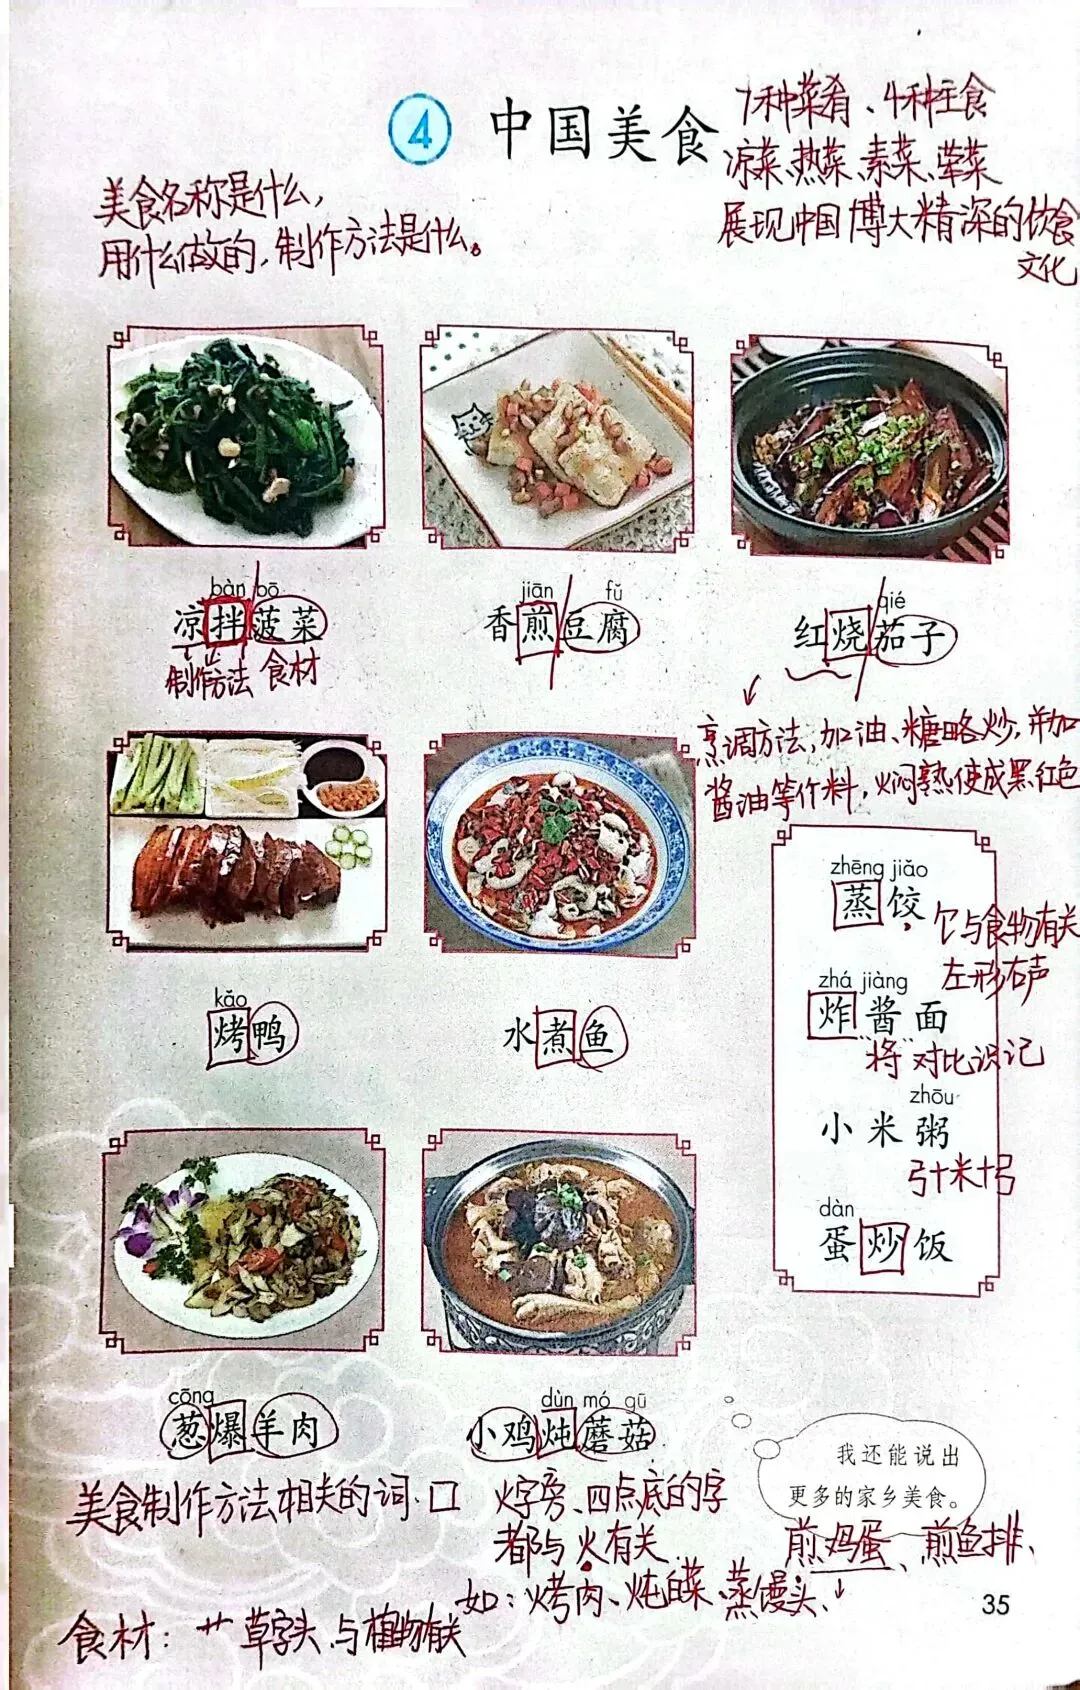 ④ 中国美食
7种菜肴、4种主食
凉菜、热菜、素菜、荤菜
展现中国博大精深的饮食
文化
美食名称是什么,
用什么做的,制作方法是什么。
bàn bō
凉拌菠菜
制作方法 食材
jiān fǔ
香煎豆腐
qié
红烧茄子
烹调方法,加油、糖略炒,并加
酱油等作料,焖熟使成黑红色
kǎo
烤鸭
水煮鱼
zhēng jiǎo
蒸饺
饣与食物有关
左形右声
zhá jiàng
炸酱面
将 对比识记
zhōu
小米粥
弓+米+弓
dàn
蛋炒饭
cōng
葱爆羊肉
dùn mó gū
小鸡炖蘑菇
我还能说出
更多的家乡美食。
美食制作方法相关的词.口
火字旁、四点底的字
都与火有关
煎鸡蛋、煎鱼排、
如:烤肉、炖白菜、蒸馒头、
食材:艹草字头、与植物有关
35